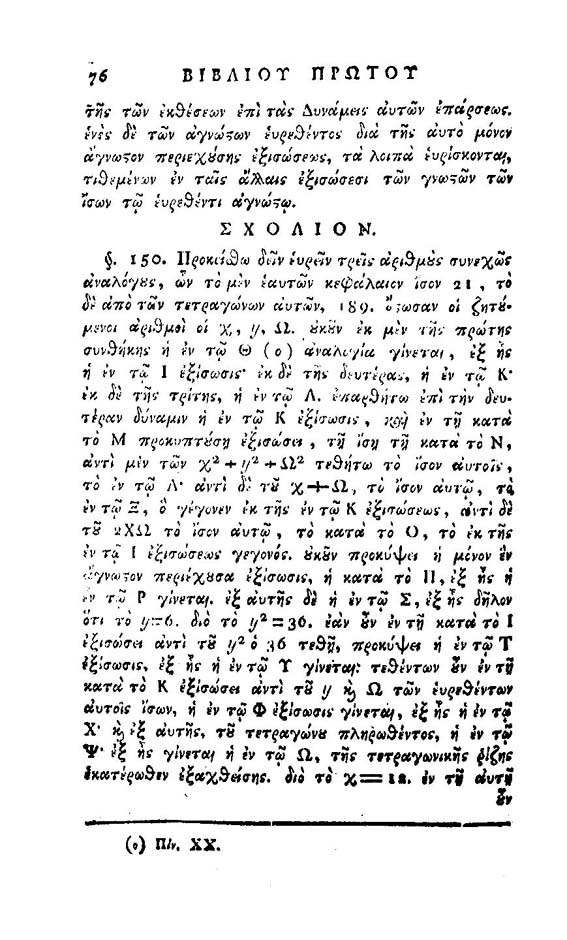 76 ΒΙΒΛΙΟΥ ΠΡΩΤΟΥ
τῆς τῶν ἐκθέσεων ἐπὶ τὰς Δυνάμεις αὐτῶν ἐπάρσεως.
ἑνὸς δὲ τῶν ἀγνώϛων εὑρεθέντος διὰ τῆς αὐτὸ μόνον
ἄγνωϛον περιεχύσης ἐξισώσεως, τὰ λοιπὰ εὑρίσκονται,
τιθεμένων ἐν ταῖς ἄλλαις ἐξισώσεσι τῶν γνωϛῶν τῶν
ἴσων τῷ εὑρεθέντι ἀγνώϛῳ.
ΣΧΟΛΙΟΝ.
§. 150. Προκείϑω δεῖν εὑρεῖν τρεῖς ἀριθμȣ̀ς συνεχῶς
ἀναλόγȣς, ὧν τὸ μὲν ἑαυτῶν κεφάλαιον ἴσον 21, τὸ
δὲ ἀπὸ τῶν τετραγώνων αὐτῶν, 189. ἔϛωσαν οἱ ζητȣ́-
μενοι ἀριθμοὶ οἱ χ, y, Ω. ȣ̓κȣ͂ν ἐκ μὲν τῆς πρώτης
συνθήκης ἡ ἐν τῷ Θ (ο) ἀναλογία γίνεται, ἐξ ἧς
ἡ ἐν τῷ Ι ἐξίσωσις· ἐκ δὲ τῆς δευτέρας, ἡ ἐν τῷ Κ·
ἐκ δὲ τῆς τρίτης, ἡ ἐν τῷ Λ. ἐπαρθήτω ἐπὶ τὴν δευ-
τέραν δύναμιν ἡ ἐν τῷ Κ ἐξίσωσις, καὶ ἐν τῇ κατὰ
τὸ Μ προκυπτȣ́σῃ ἐξισώσει, τῇ ἴσῃ τῇ κατὰ τὸ Ν,
ἀντὶ μὲν τῶν χ² + y² + Ω² τεθήτω τὸ ἴσον αὐτοῖς,
τὸ ἐν τῷ Λ· ἀντὶ δὲ τȣ͂ χ + Ω, τὸ ἴσον αὐτῷ, τὸ
ἐν τῷ Ξ, ὃ γέγονεν ἐκ τῆς ἐν τῷ Κ ἐξισώσεως, ἀντὶ δὲ
τȣ͂ 2ΧΩ τὸ ἴσον αὐτῷ, τὸ κατὰ τὸ Ο, τὸ ἐκ τῆς
ἐν τῷ Ι ἐξισώσεως γεγονός. ȣ̓κȣ͂ν προκύψει ἡ μόνον ἓν
ἄγνωϛον περιέχȣσα ἐξίσωσις, ἡ κατὰ τὸ Π, ἐξ ἧς ἡ
ἐν τῷ Ρ γίνεται. ἐξ αὐτῆς δὲ ἡ ἐν τῷ Σ, ἐξ ἧς δῆλον
ὅτι τὸ y=6. διὸ τὸ y² = 36. ἐὰν ȣ͂ν ἐν τῇ κατὰ τὸ Ι
ἐξισώσει ἀντὶ τȣ͂ y² ὁ 36 τεθῇ, προκύψει ἡ ἐν τῷ Τ
ἐξίσωσις, ἐξ ἧς ἡ ἐν τῷ Υ γίνεται: τεθέντων ȣ͂ν ἐν τῇ
κατὰ τὸ Κ ἐξισώσει ἀντὶ τȣ͂ y ϗ Ω τῶν εὑρεθέντων
αὐτοῖς ἴσων, ἡ ἐν τῷ Φ ἐξίσωσις γίνεται, ἐξ ἧς ἡ ἐν τῷ
Χ· ϗ ἐξ αὐτῆς, τȣ͂ τετραγώνȣ πληρωθέντος, ἡ ἐν τῷ
Ψ· ἐξ ἧς γίνεται ἡ ἐν τῷ Ω, τῆς τετραγωνικῆς ῥίζης
ἑκατέρωθεν ἐξαχθείσης. διὸ τὸ χ = 12. ἐν τῇ αὐτῇ
ȣ͂ν
(ο) Πίν. ΧΧ.